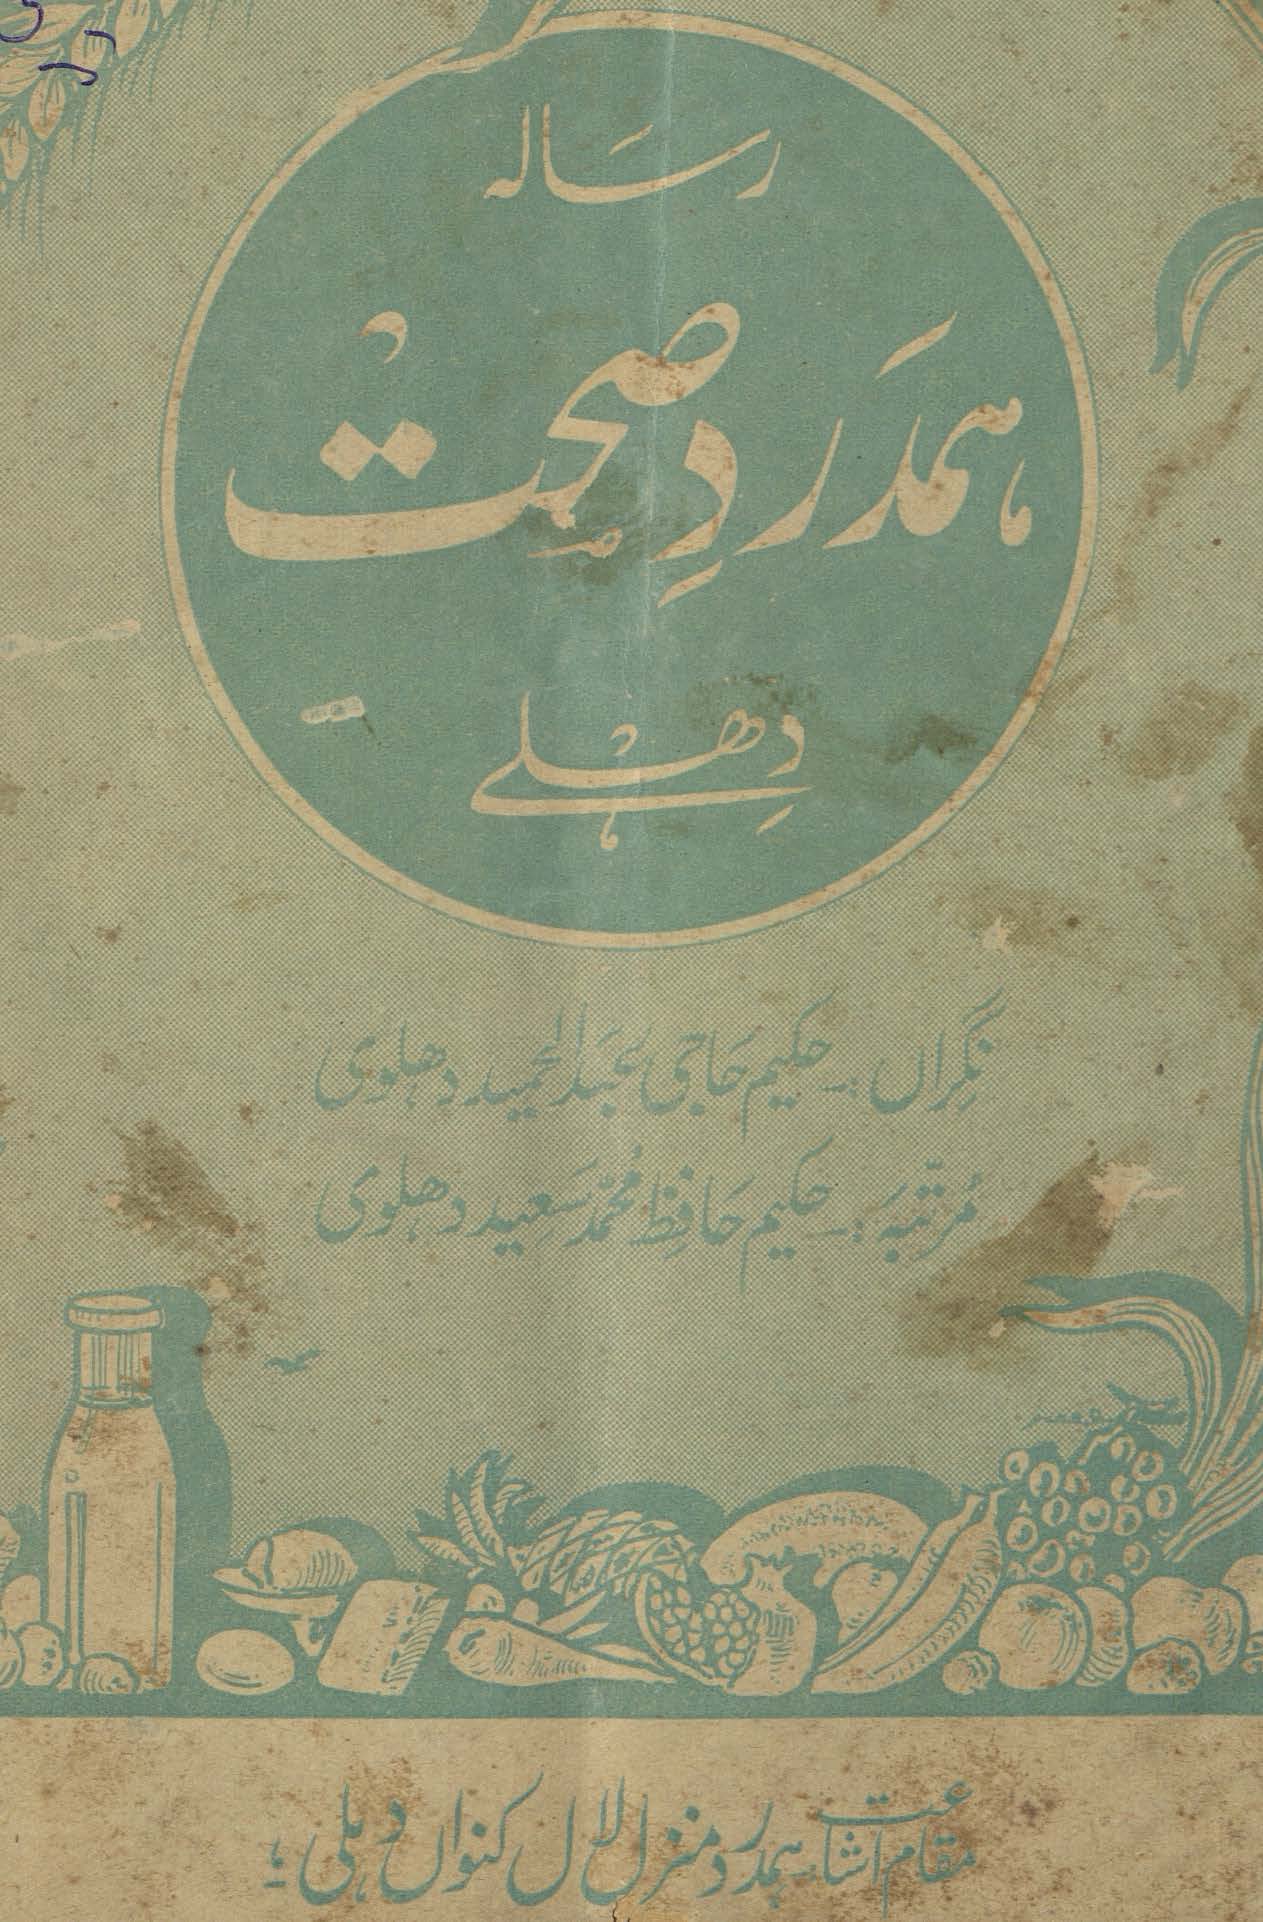 رسالہ
ہمدرد صحت
دھلی
نگراں :۔ حکیم حاجی عبدالحمید دھلوی
مرتبہ :۔ حکیم حافظ محمد سعید دھلوی
مقام اشاعت ہمدرد منزل لال کنواں دہلی